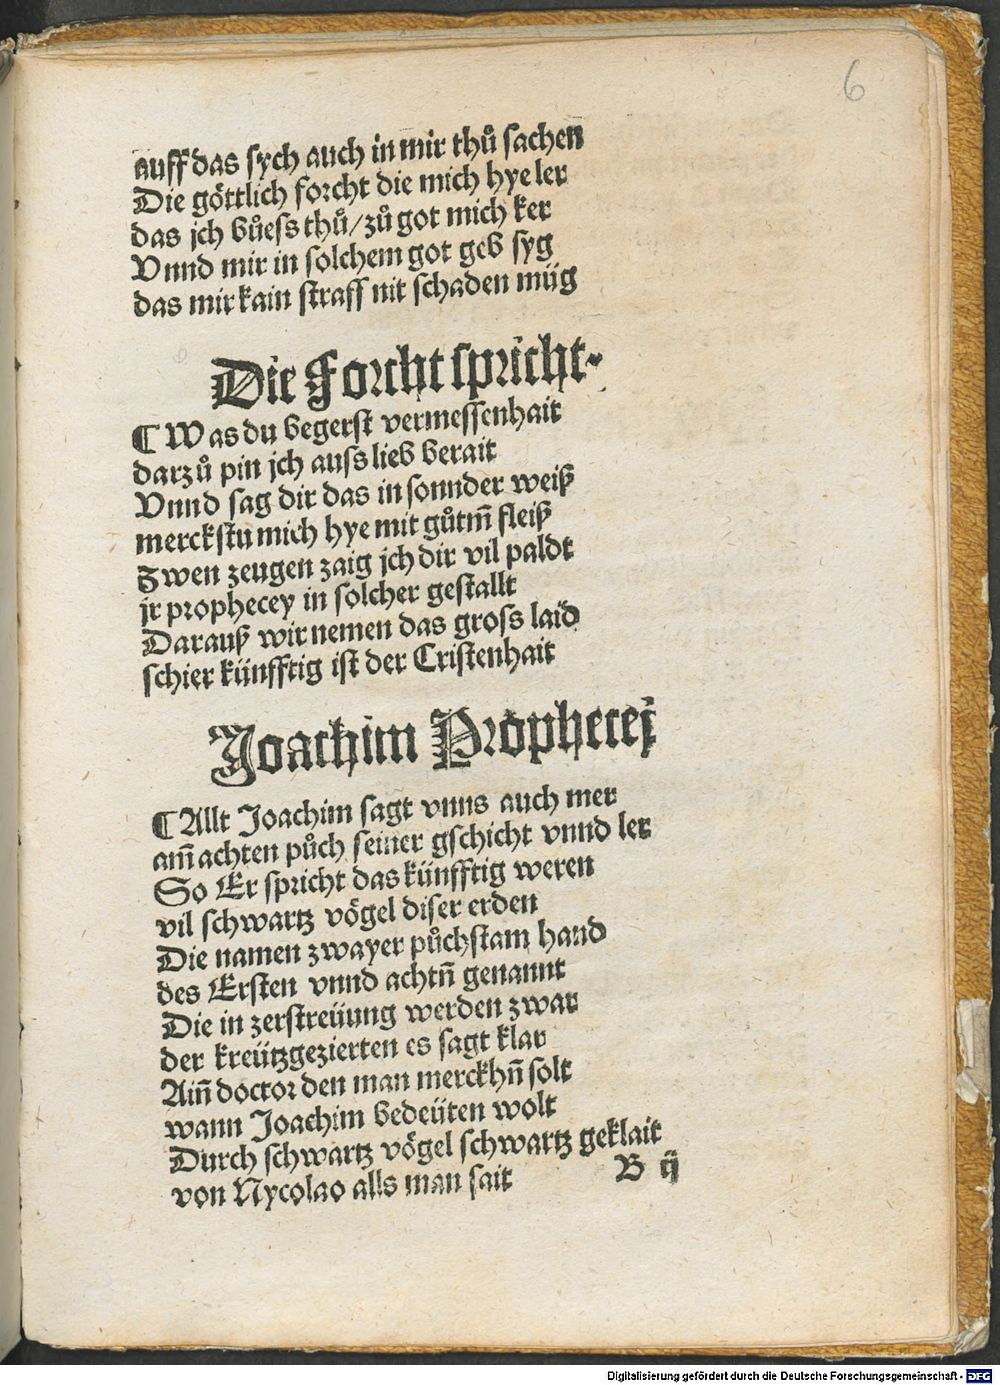 6
auff das sych auch in mir thů sachen
Die göttlich forcht die mich hye ler
das jch bůess thů/zů got mich ker
Vnnd mir in solchem got geb syg
das mir kain straff nit schaden müg
Die Forcht spricht.
¶ Was du begerst vermessenhait
darzů pin jch auss lieb berait
Vnnd sag dir das in sonnder weiß
merckstu mich hye mit gůtm̄ fleiß
Zwen zeugen zaig jch dir vil paldt
jr prophecey in solcher gestallt
Darauß wir nemen das gross laid
schier künfftig ist der Cristenhait
Joachim Prophecej
¶ Allt Joachim sagt vnns auch mer
am̄ achten půch seiner gschicht vnnd ler
So Er spricht das künfftig weren
vil schwartz vögel diser erden
Die namen zwayer půchstam hand
des Ersten vnnd achtn̄ genannt
Die in zerstreüung werden zwar
der kreützgezierten es sagt klar
Ain̄ doctor den man merckhn̄ solt
wann Joachim bedeüten wolt
Durch schwartz vögel schwartz geklait
von Nycolao alls man sait
B ij
Digitalisierung gefördert durch die Deutsche Forschungsgemeinschaft - DFG